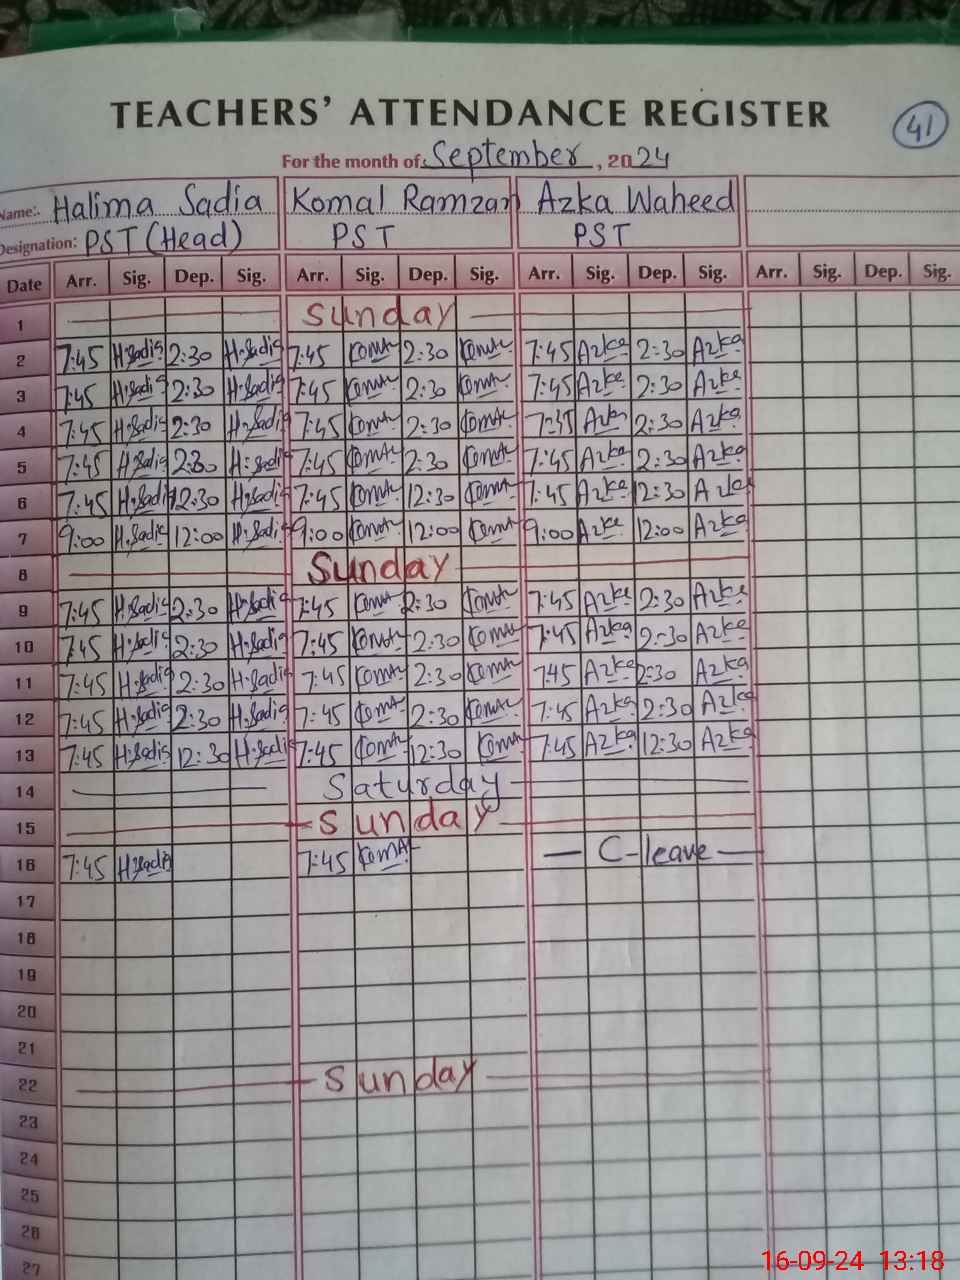 TEACHERS' ATTENDANCE REGISTER
41
For the month of September, 2024
Name: Halima Sadia Komal Ramzan Azka Waheed
Designation: PST (Head) PST PST
Date Arr. Sig. Dep. Sig. Arr. Sig. Dep. Sig. Arr. Sig. Dep. Sig. Arr. Sig. Dep. Sig.
1 Sunday
2 7:45 H.Sadia 2:30 H.Sadia 7:45 Komal 2:30 Komal 7:45 Azka 2:30 Azka
3 7:45 H.Sadia 2:30 H.Sadia 7:45 Komal 2:30 Komal 7:45 Azka 2:30 Azka
4 7:45 H.Sadia 2:30 H.Sadia 7:45 Komal 2:30 Komal Azka 2:30 Azka
5 7:45 H.Sadia 2:30 H.Sadia 7:45 Komal 2:30 Komal 7:45 Azka 2:30 Azka
6 7:45 H.Sadia 12:30 H.Sadia 7:45 Komal 12:30 Komal 7:45 Azka 12:30 Azka
7 9:00 H.Sadia 12:00 H.Sadia 9:00 Komal 12:00 Komal 9:00 Azka 12:00 Azka
8 Sunday
9 7:45 H.Sadia 2:30 H.Sadia 7:45 Komal 2:30 Komal 7:45 Azka 2:30 Azka
10 7:45 H.Sadia 2:30 H.Sadia 7:45 Komal 2:30 Komal 7:45 Azka 2:30 Azka
11 7:45 H.Sadia 2:30 H.Sadia 7:45 Komal 2:30 Komal 745 Azka 2:30 Azka
12 7:45 H.Sadia 2:30 H.Sadia 7:45 Komal 2:30 Komal 7:45 Azka 2:30 Azka
13 7:45 H.Sadia 12:30 H.Sadia 7:45 Komal 12:30 Komal 7:45 Azka 12:30 Azka
14 Saturday
15 Sunday
16 7:45 H.Sadia 7:45 Komal — C-leave —
17
18
19
20
21
22 Sunday
23
24
25
26
27
16-09-24 13:18